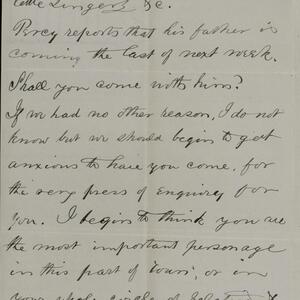 &c.
Percy reports that his father is
coming the last of next week.
Shall you come with him?
If we had no other reason, I do not
know but we should begin to get
anxious to have you come, for
the very press of enquiry for
you. I begin to think you are
the most important personage
in this part of "ours", or in
your whole circle of